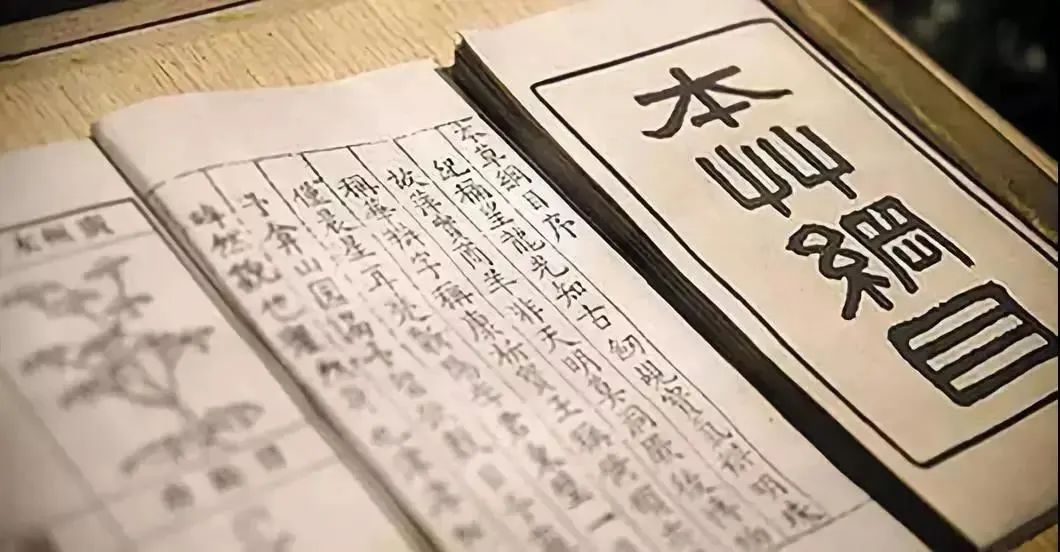 本草綱目
本草綱目序
紀稱望龍光知古劍覘寶氣辨明珠
故萍實商羊非天明莫洞厥後博物
稱華辨字稱康析寶玉稱倚頓
僅晨星耳楚蘄陽李君東璧一
予弇山園謁予留飲數日予
睟然貌也癯然身也津津